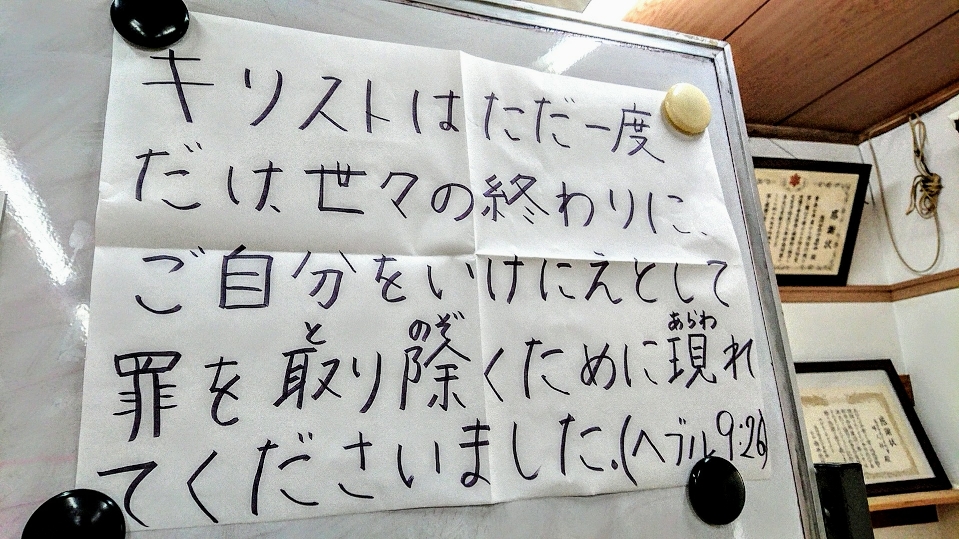 キリストはただ一度
だけ、世々の終わりに、
ご自分をいけにえとして
罪を取り除くために現れ
てくださいました。(ヘブル9:26)
と
のぞ
あらわ
感謝状
感謝状